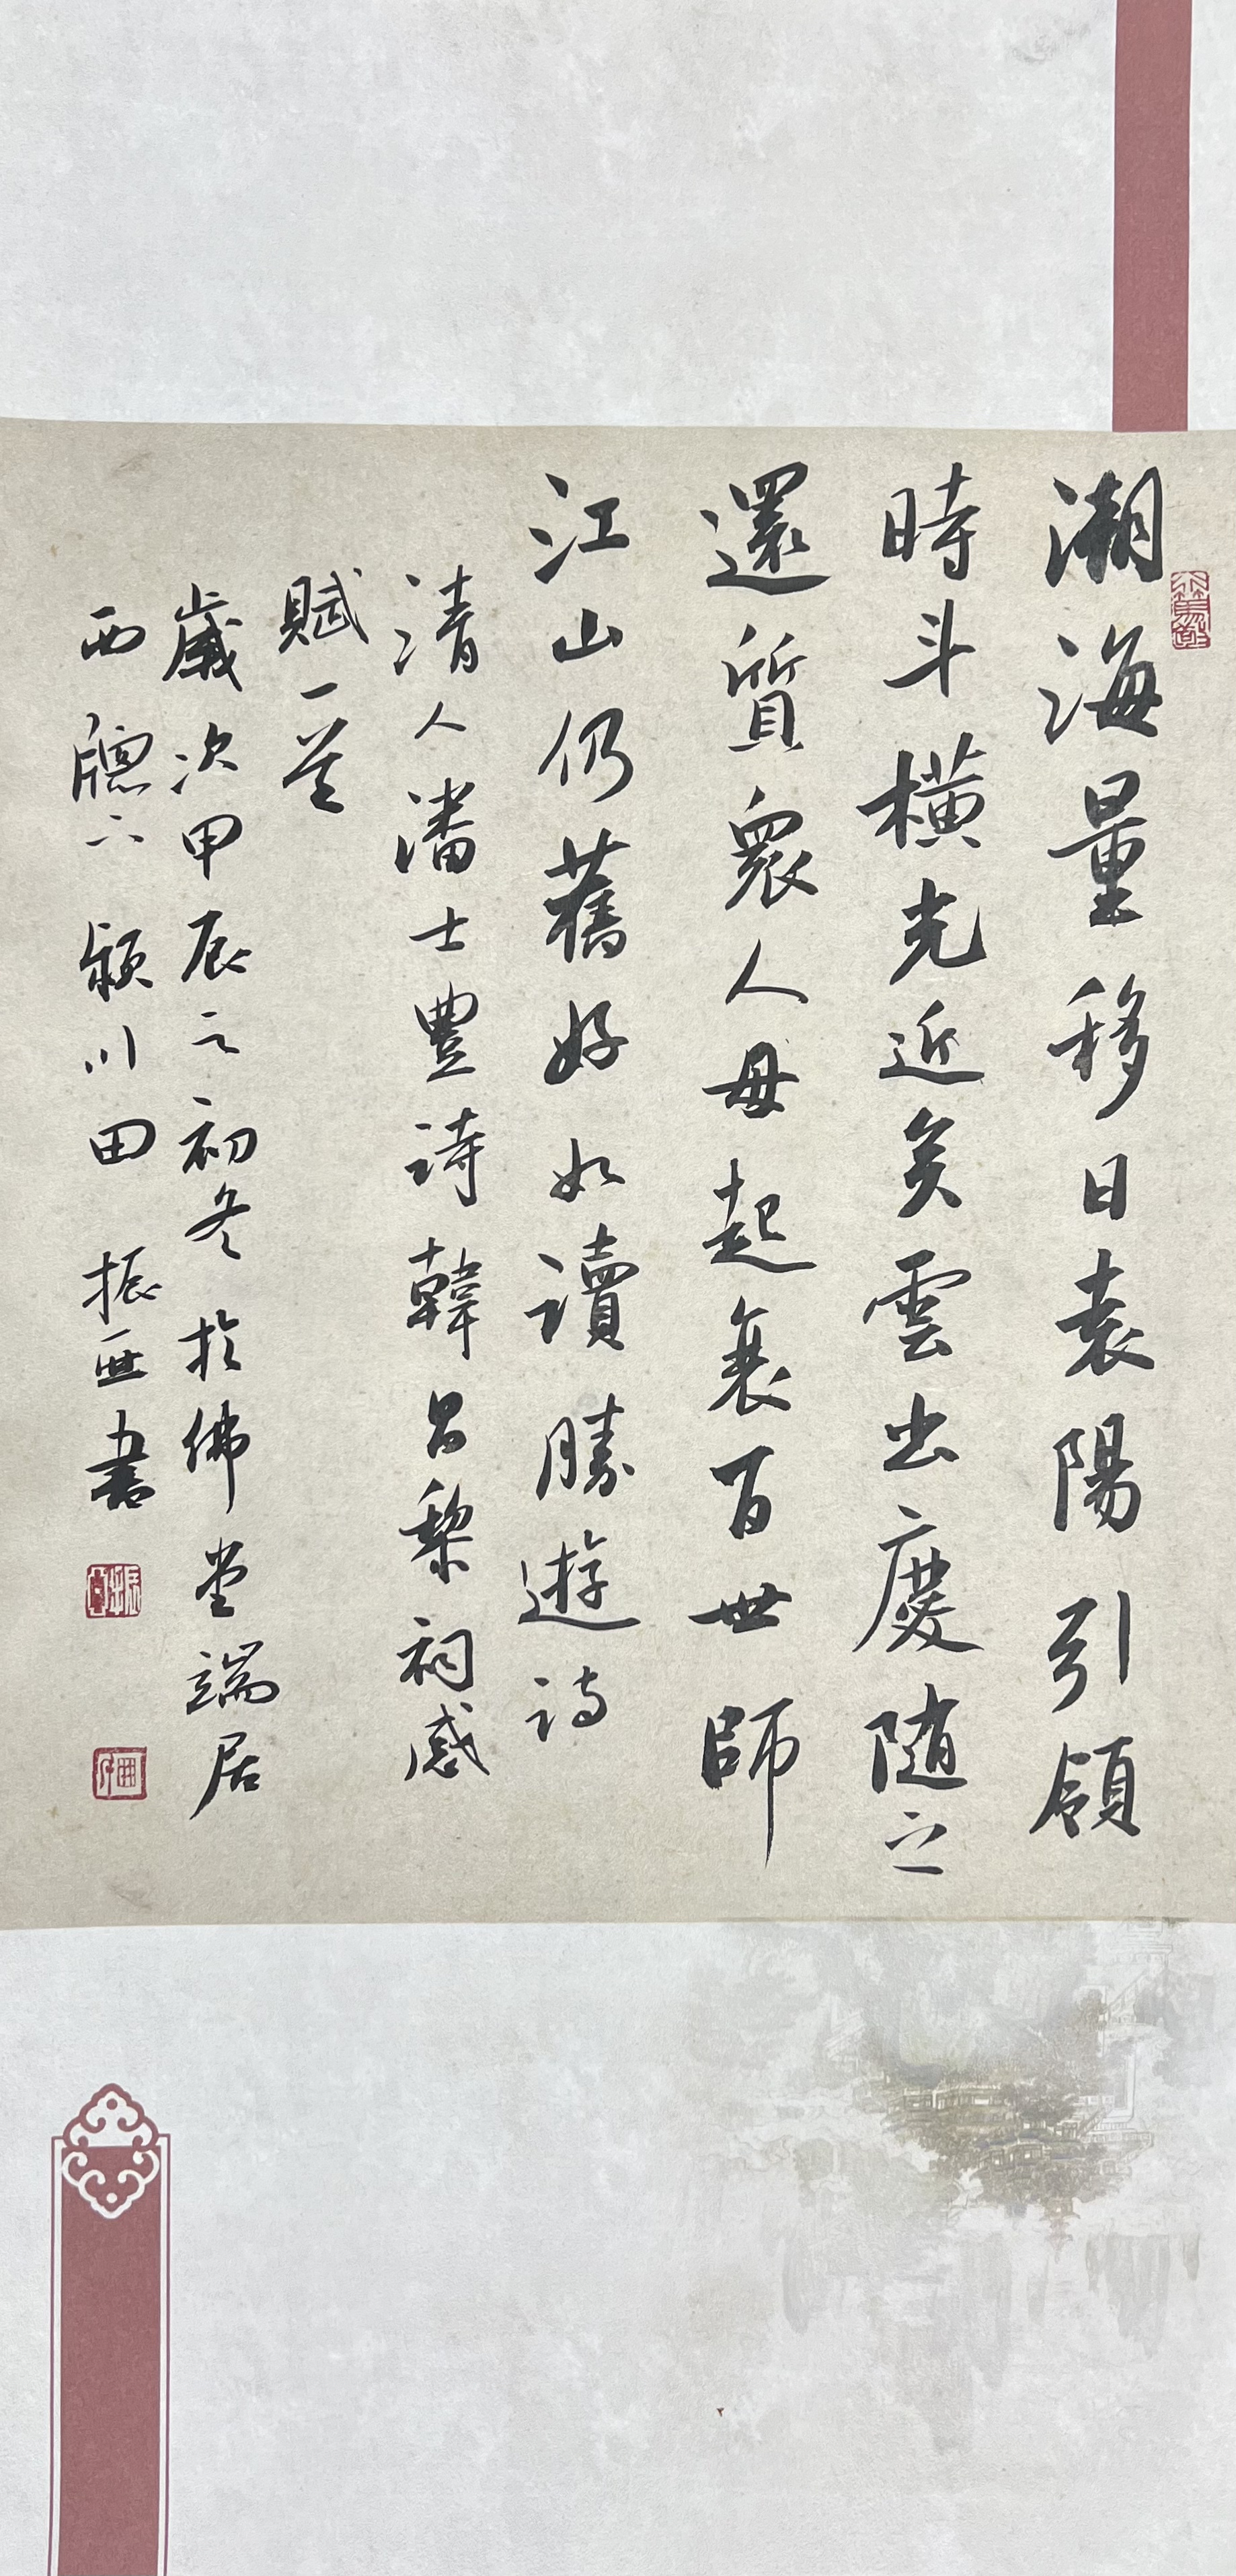 潮海量移日袁陽引領
時斗橫光近矣雲出慶随之
還質衆人母起衰百世師
江山仍舊好如讀勝遊詩
清人潘士豐詩韓昌黎祠感
賦一首
歲次甲辰之初冬於佛堂端居
西牕下潁川田振亞書